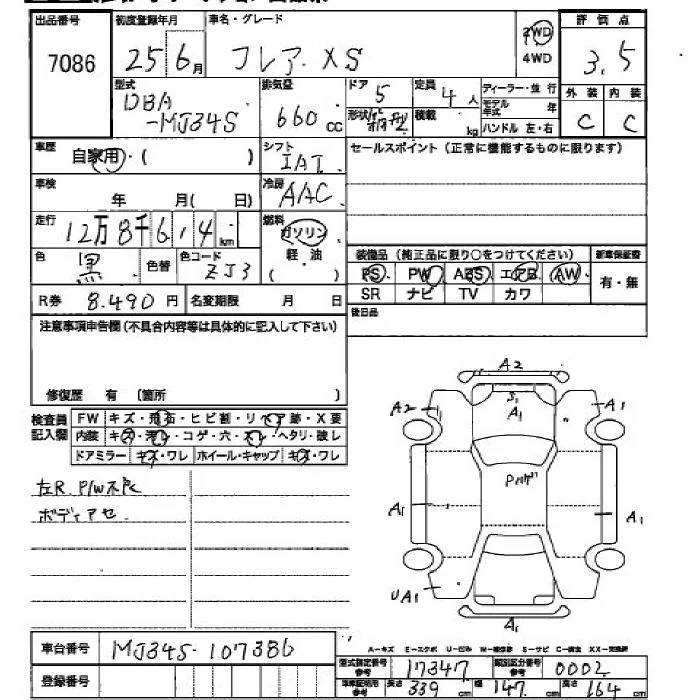 出品番号 初度登録年月 車名・グレード 評価点
7086 25年6月 フレア XS 2WD 4WD 3.5
型式 DBA-MJ34S 排気量 660cc ドア 5 定員 4人 ディーラー・並行
形状 積載 kg モデル年式 年 ハンドル 左・右
外装 C 内装 C
車歴 自家用・( ) シフト IAT セールスポイント(正常に機能するものに限ります)
車検 年 月(日) 冷房 AAC
走行 12万8千614km 燃料 ガソリン 軽油
色 黒 色替 色コード ZJ3
装備品(純正品に限り○をつけてください) 新車保証書
PS PW ABS エアB AW 有・無
SR ナビ TV カワ
R券 8.490円 名変期限 月 日
後日品
注意事項申告欄(不具合内容等は具体的に記入して下さい)
修復歴 有 〔箇所 〕
検査員記入欄 FW キズ・飛石・ヒビ割・リペア跡・X要
内装 キズ・汚レ・コゲ・穴・スレ・ヘタリ・破レ
ドアミラー キズ・ワレ ホイール・キャップ キズ・ワレ
左R. P/W不良
ボディアセ
A2
A2 S1 A1 A1
A1 A1
UA1
A1
車台番号 MJ34S-107386
A-キズ E-エクボ U-凹み W-補修跡 S-サビ C-腐食 XX-交換済
型式指定番号 参考 17347 類別区分番号 参考 0002
登録番号 車庫証明用参考 長さ 339cm 幅 147cm 高さ 164cm